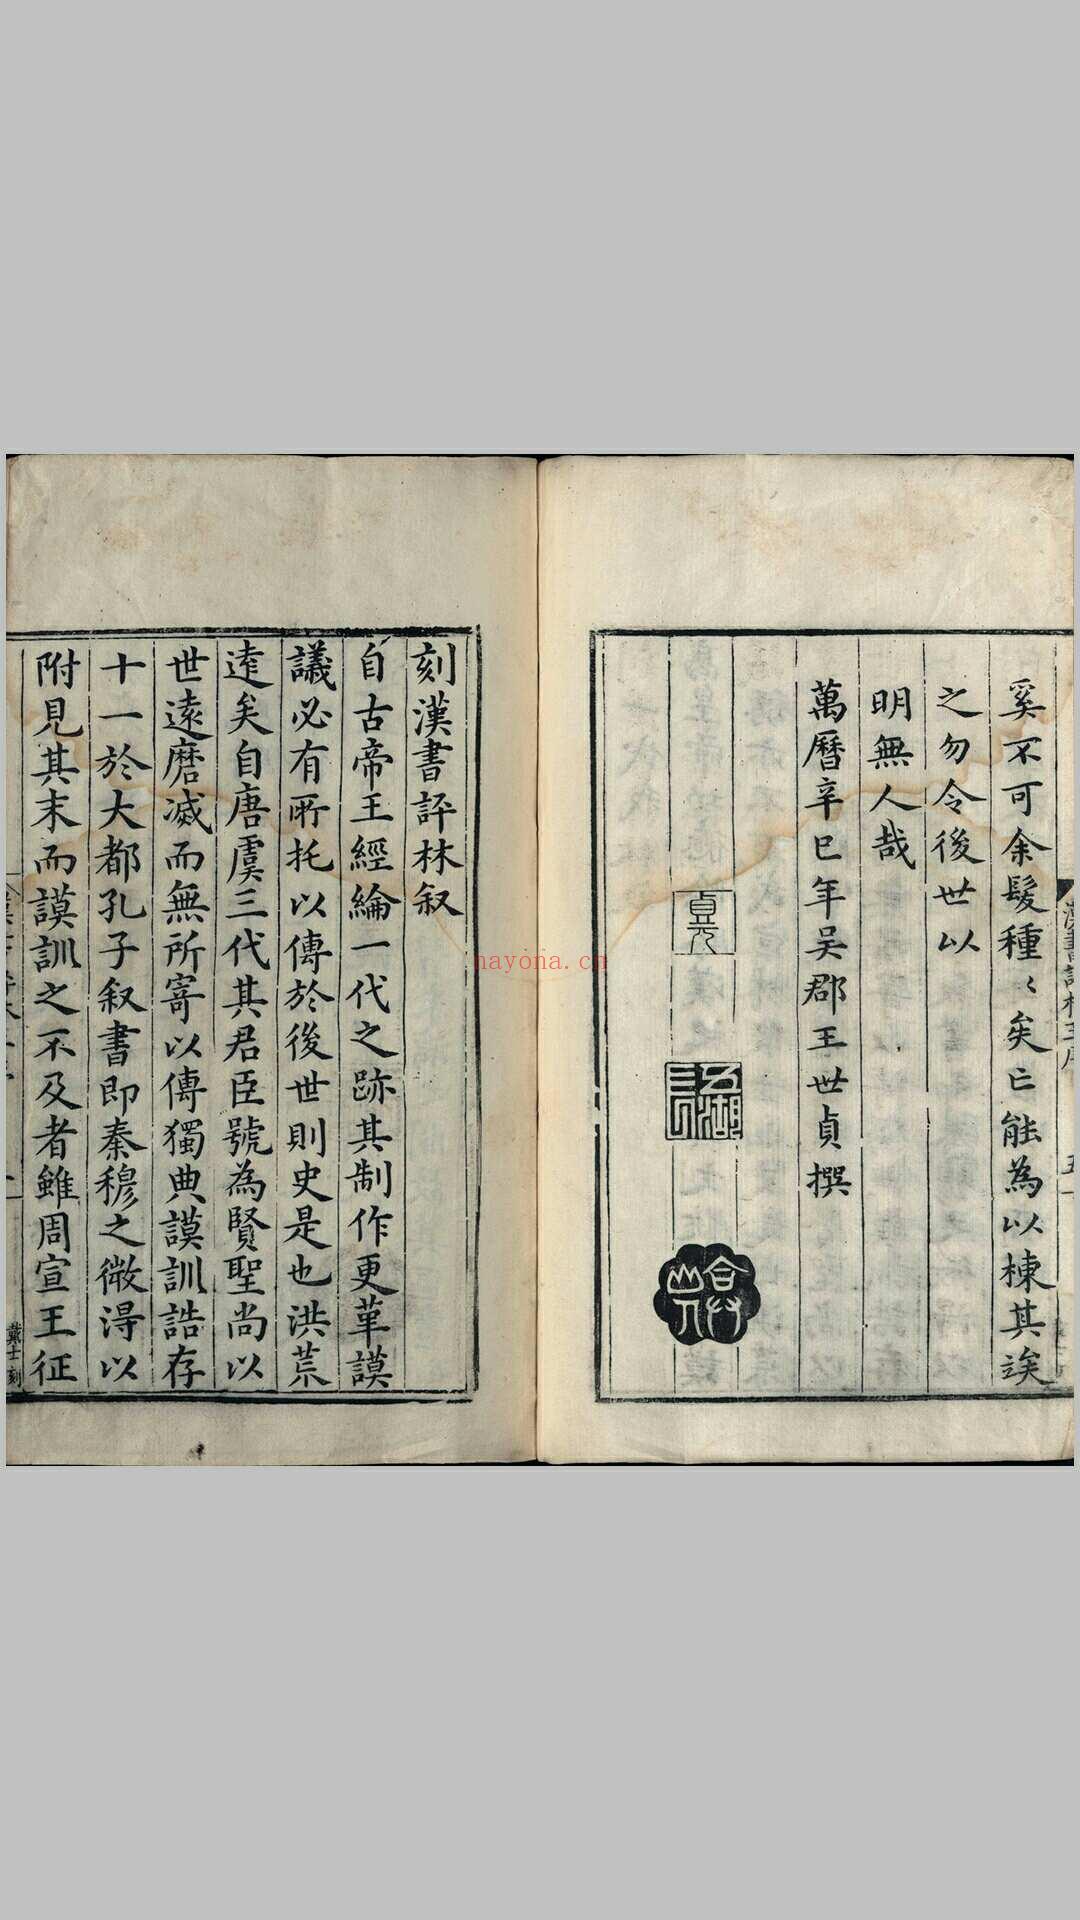 奚不可余髮種〻矣亡能為以棟其誒
之勿令後世以
明無人哉
萬曆辛巳年吳郡王世貞撰
貞元
刻漢書評林叙
自古帝王經綸一代之跡其制作更革謨
議必有所托以傳於後世則史是也洪荒
逺矣自唐虞三代其君臣號為賢聖尚以
世遠磨滅而無所寄以傳獨典謨訓誥存
十一於大都孔子叙書即秦穆之微淂以
附見其末而謨訓之不及者雖周宣王征
戴士刻
nayona.cn